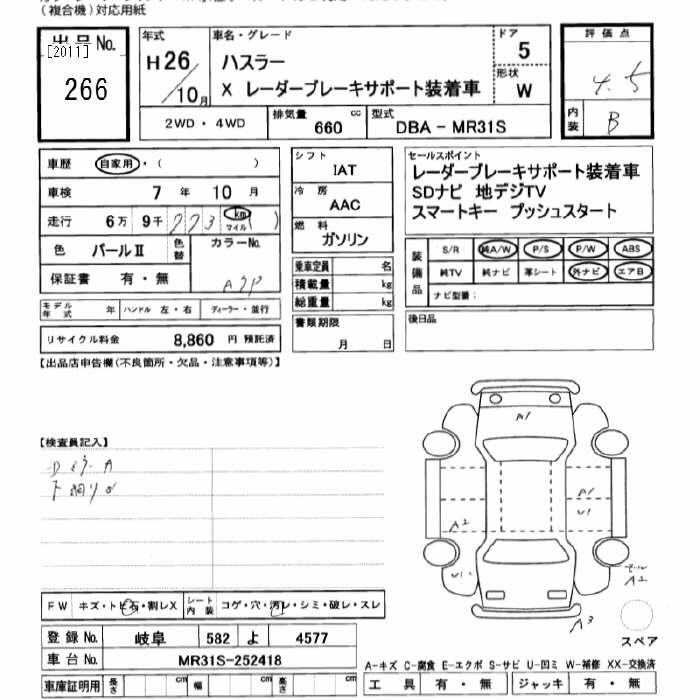 (複合機)対応用紙
出品No.
[2011]
266
年式
H26/10月
車名・グレード
ハスラー
X レーダーブレーキサポート装着車
ドア
5
形状
W
評価点
4.5
内装
B
2WD・4WD
排気量
660 cc
型式
DBA-MR31S
車歴 自家用・( )
車検 7年 10月
走行 6万 9千 773 km マイル ( )
色 パールⅡ 色替 カラーNo.
保証書 有・無
モデル年式 年 ハンドル 左・右 ディーラー・並行
リサイクル料金 8,860 円 預託済
シフト
IAT
冷房
AAC
燃料
ガソリン
乗車定員 名
積載量 kg
総重量 kg
書類期限
月 日
セールスポイント
レーダーブレーキサポート装着車
SDナビ 地デジTV
スマートキー プッシュスタート
装備品
S/R 純A/W P/S P/W ABS
純TV 純ナビ 革シート 外ナビ エアB
ナビ型番:
後日品
【出品店申告欄(不良箇所・欠品・注意事項等)】
【検査員記入】
A1
A1
U1
A2
A2
A3
スペア
FW キズ・トビ石・割レX シート内装 コゲ・穴・汚レ・シミ・破レ・スレ
登録No. 岐阜 582 よ 4577
車台No. MR31S-252418
車庫証明用 長さ cm 幅 cm 高さ cm
A-キズ C-腐食 E-エクボ S-サビ U-凹ミ W-補修 XX-交換済
工具 有・無 ジャッキ 有・無